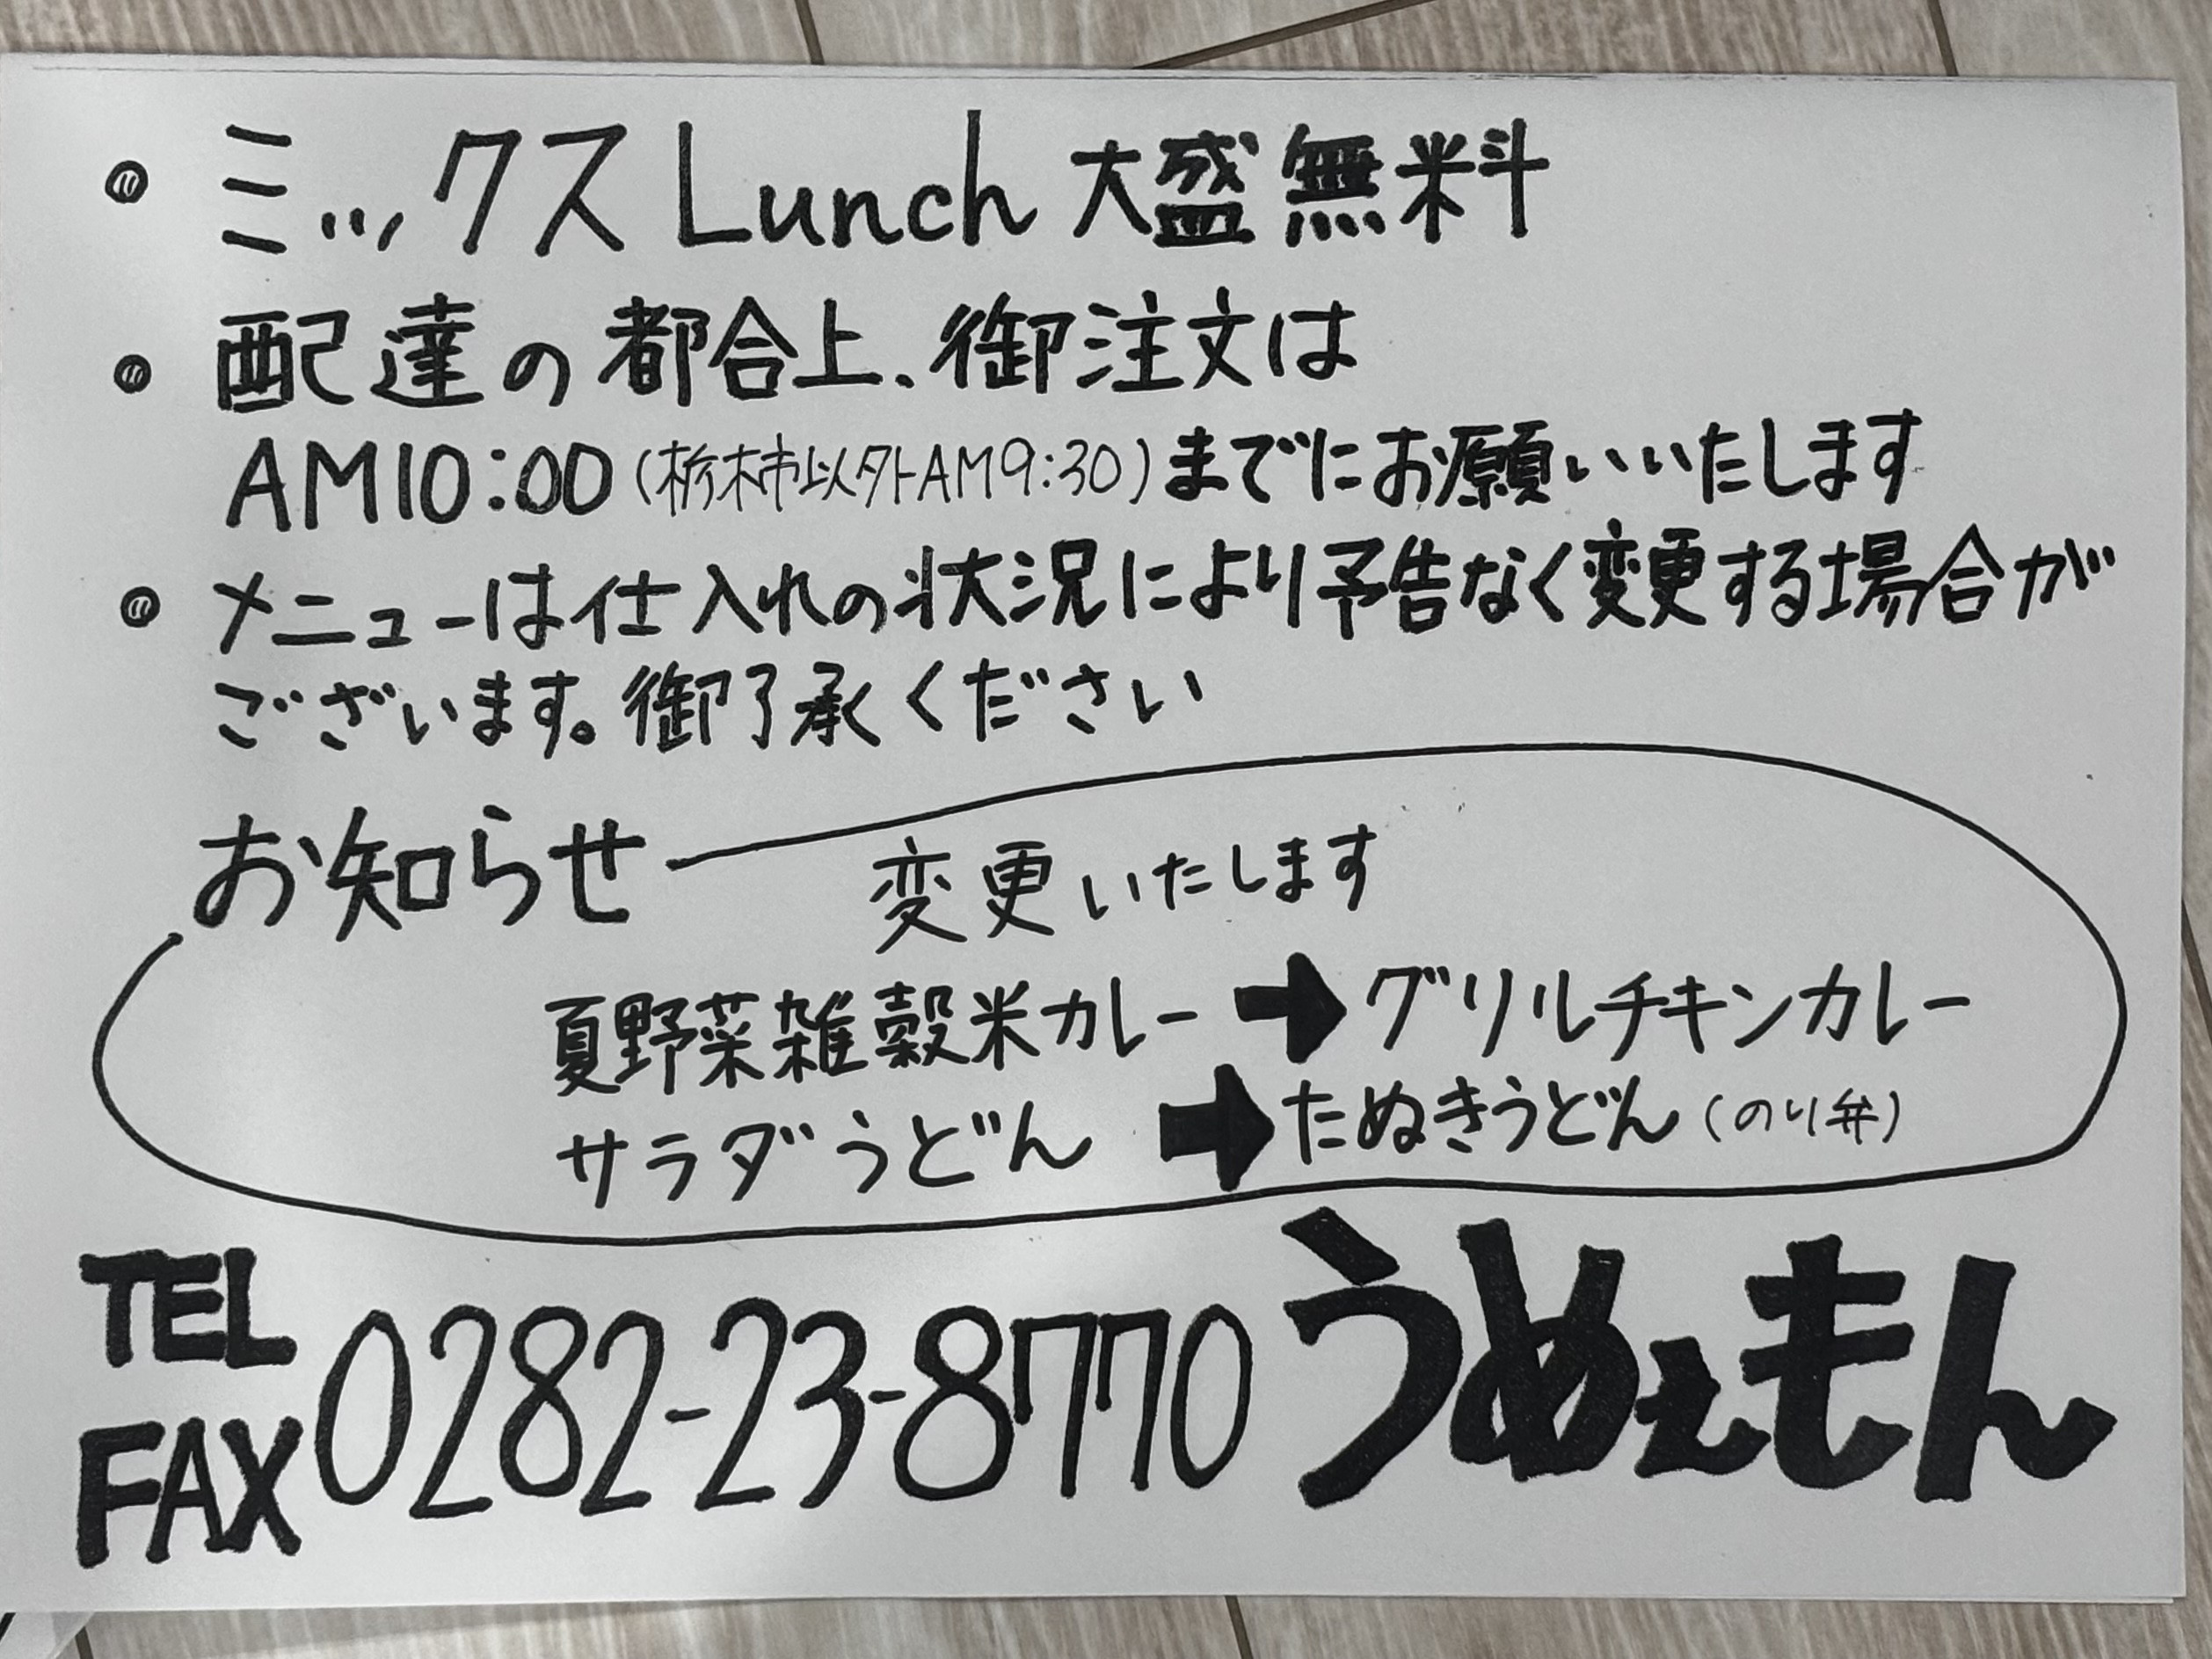 • ミックスLunch 大盛無料
• 配達の都合上、御注文は
AM10:00(栃木市以外AM9:30)までにお願いいたします
• メニューは仕入れの状況により予告なく変更する場合が
ございます。御了承ください
お知らせ
変更いたします
夏野菜雑穀米カレー➡グリルチキンカレー
サラダうどん ➡たぬきうどん(のり弁)
TEL
FAX 0282-23-8770 うめぇもん